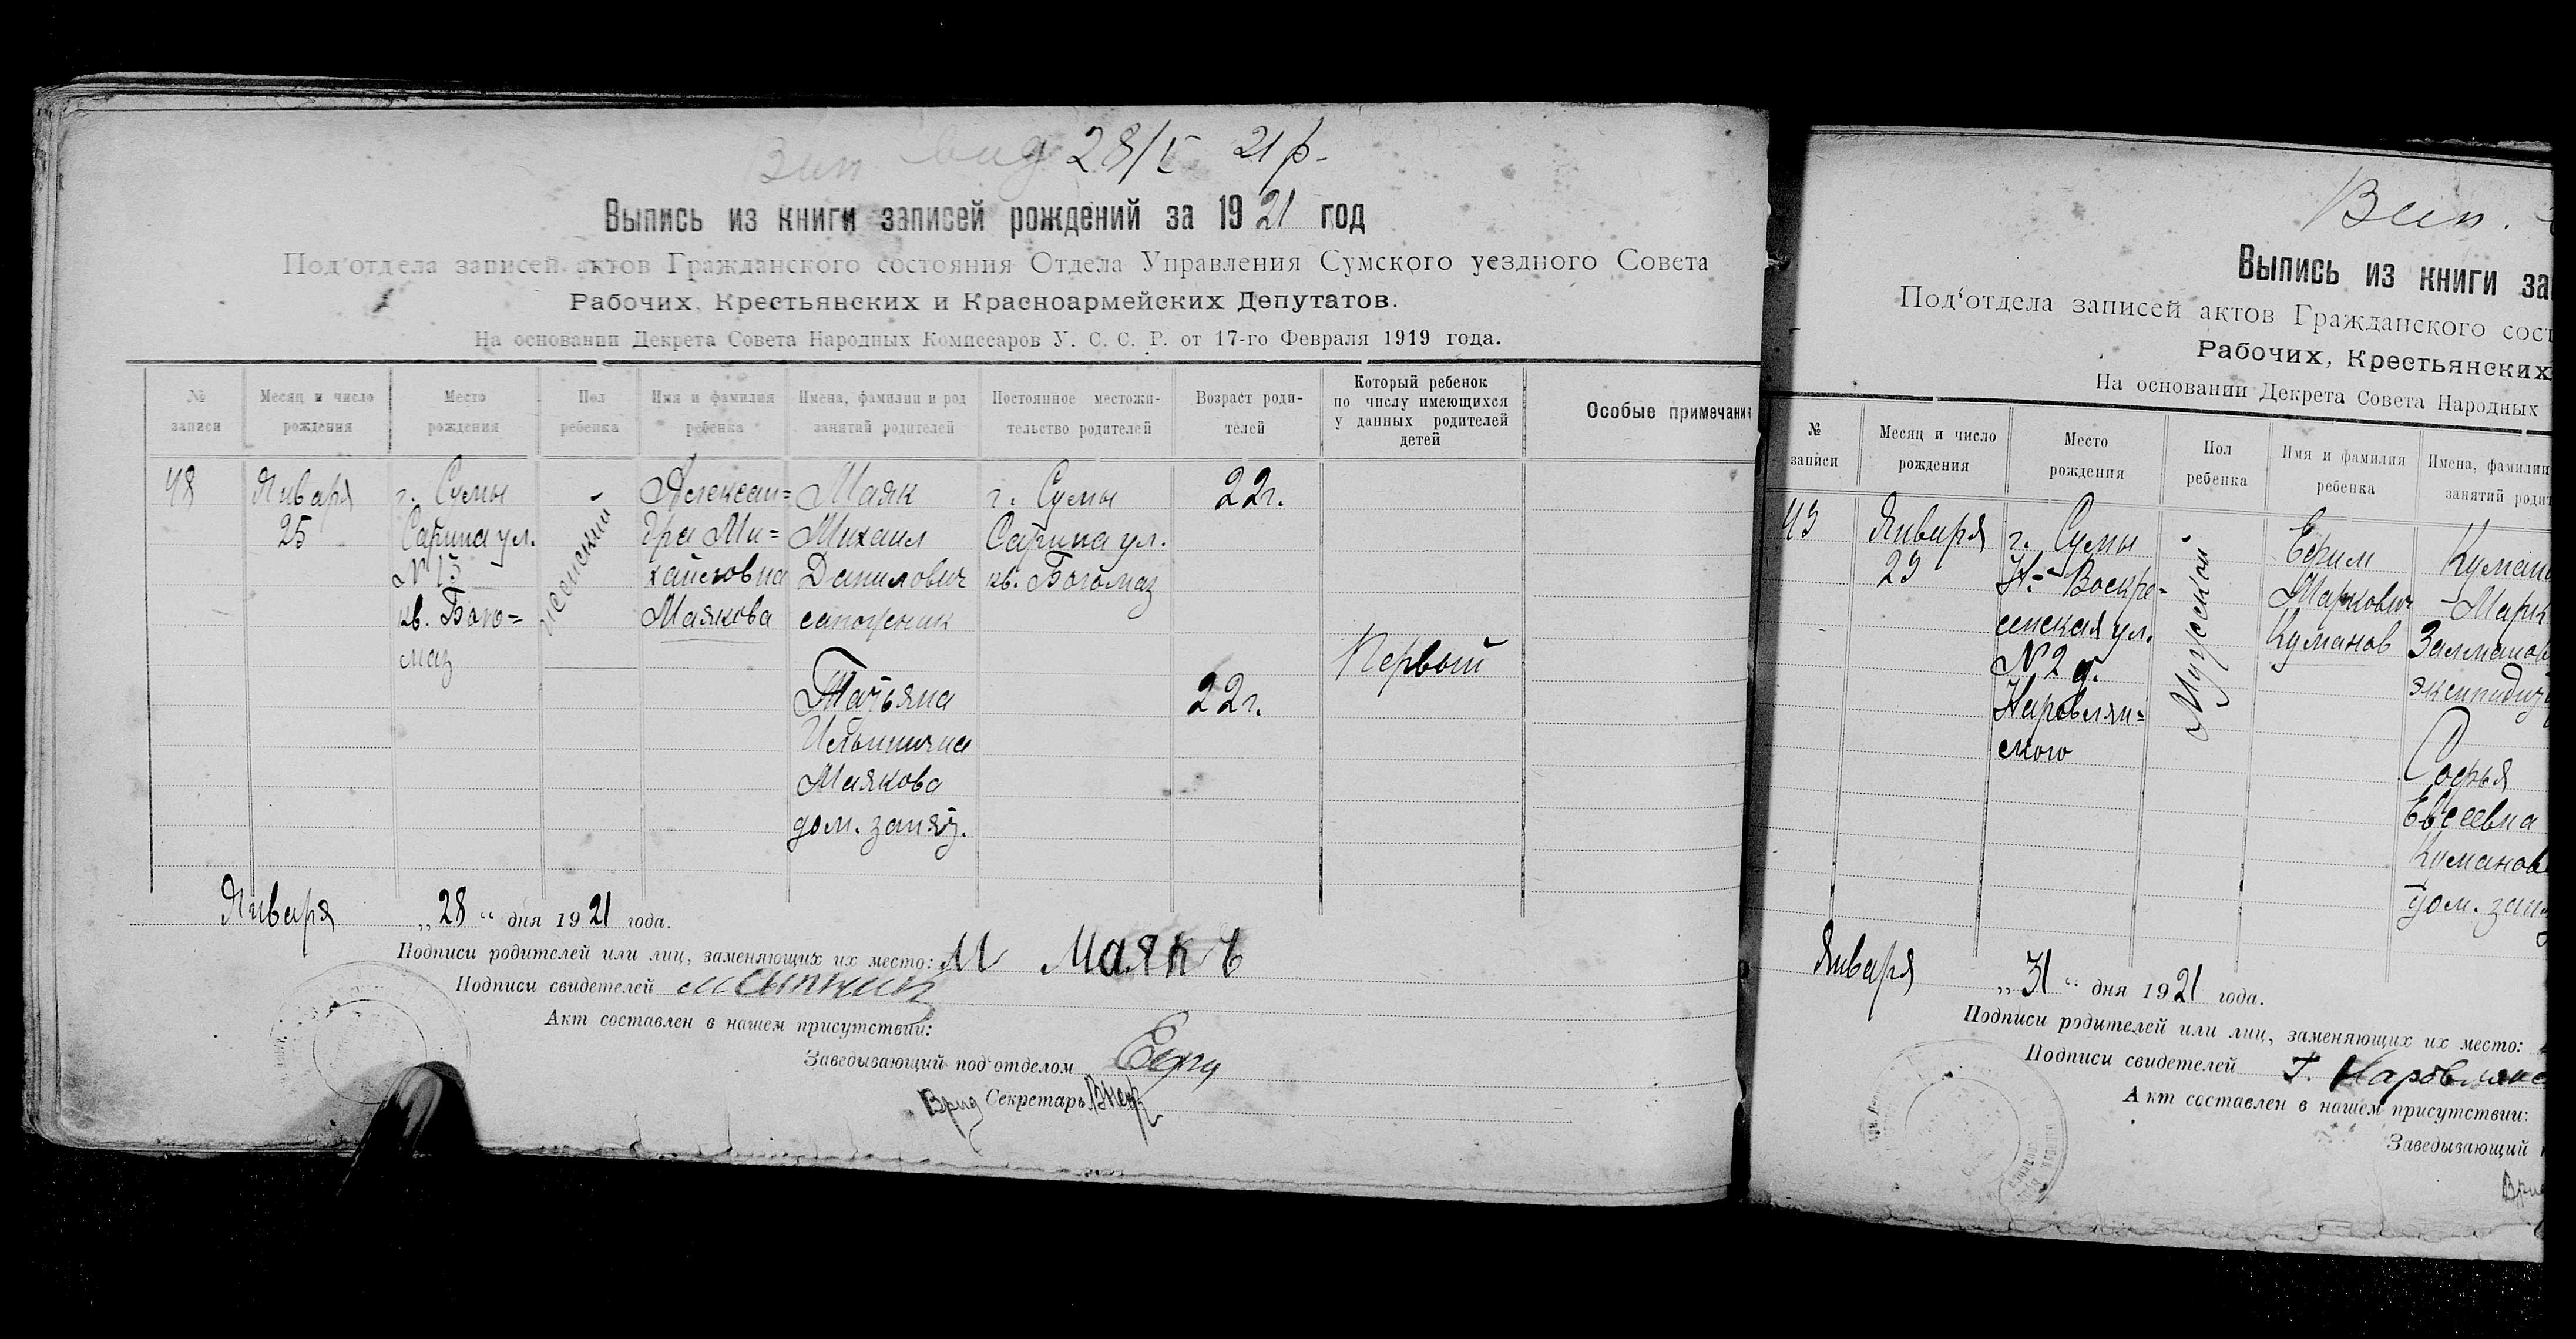 Вип вид 28/I 21 р.
Выпись из книги записей рождений за 1921 год
Под'отдела записей актов Гражданского состояния Отдела Управления Сумского уездного Совета
Рабочих, Крестьянских и Красноармейских Депутатов.
На основании Декрета Совета Народных Комиссаров У. С. С. Р. от 17-го Февраля 1919 года.
№ записи
Месяц и число рождения
Место рождения
Пол ребенка
Имя и фамилия ребенка
Имена, фамилии и род занятий родителей
Постоянное местожи-
тельство родителей
Возраст роди-
телей
Который ребенок
по числу имеющихся
у данных родителей
детей
Особые примечания
48
Января
25
г. Сумы
ул.
№ 13
кв. Бого=
маз
женский
Алексан=
дра Ми=
хайловна
Маякова
Маяк
Михаил
Данилович
сапожник
Татьяна
Ильинична
Маякова
дом. занят.
г. Сумы
ул.
кв. Богомаз
22 г.
22 г.
Первый
Января „28“ дня 1921 года.
Подписи родителей или лиц, заменяющих их место: М Маякъ
Подписи свидетелей
Акт составлен в нашем присутствии:
Заведывающий под'отделом
Врид Секретарь
Вип.
Выпись из книги за
Под'отдела записей актов Гражданского сост
Рабочих, Крестьянских
На основании Декрета Совета Народных
№ записи
Месяц и число рождения
Место рождения
Пол ребенка
Имя и фамилия ребенка
Имена, фамилии
занятий родит
Января
29
г. Сумы
Н.-Воскре=
сенская ул.
№ 2 д.
Наровлян=
ского
Мужской
Ефим
Маркович
Куманов
Куман
Марк
Залманов
Софья
Евсеевна
Куманов
дом. зан
Января „31“ дня 1921 года.
Подписи родителей или лиц, заменяющих их место:
Подписи свидетелей Г. Наровлянс
Акт составлен в нашем присутствии:
Заведывающий
Врид